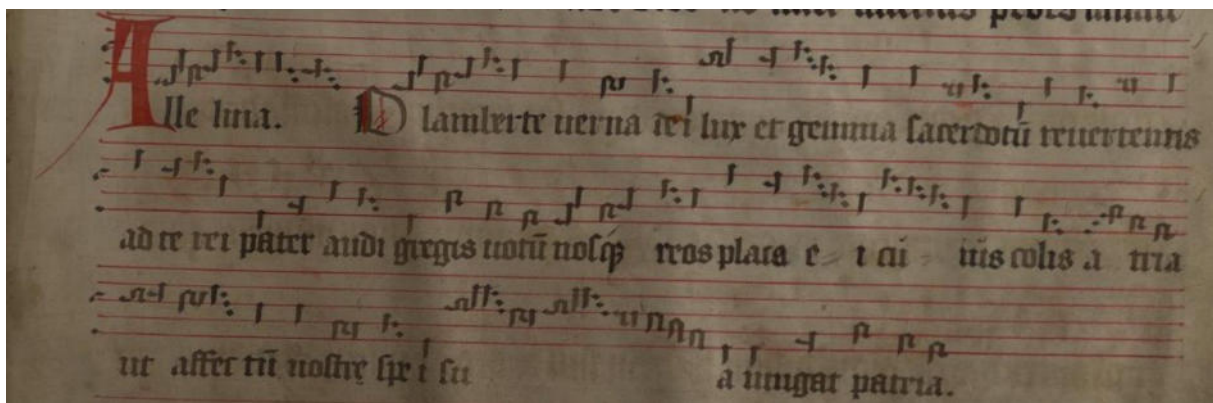 Alle luia. O lamberte uerna dei lux et gemma sacerdotū reuertentis
ad te rei pater audi gregis uotū nosq̄ reos placa e i cu ius colis a tria
ut affec tū nostrę spe i su a uiugat patria.